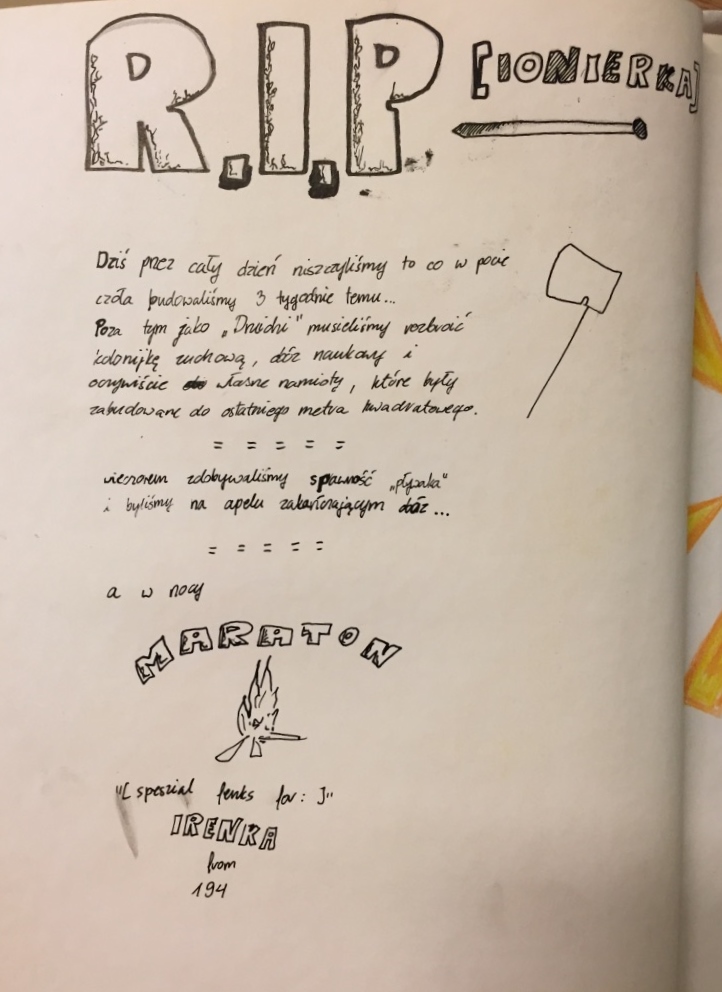 R.I.P [IONIERKA]
Dziś przez cały dzień niszczyliśmy to co w pocie
czoła budowaliśmy 3 tygodnie temu...
Poza tym jako „Druidhi" musieliśmy rozbroić
kolonijkę zuchową, obóz naukowy i
oczywiście własne namioty, które były
zabudowane do ostatniego metra kwadratowego.
= = = = =
wieczorem zdobywaliśmy sprawność „pływaka"
i byliśmy na apelu zakańczającym obóz...
= = = = =
a w nocy
MARATON
"[speszial fenks for:]"
IRENKA
from
194